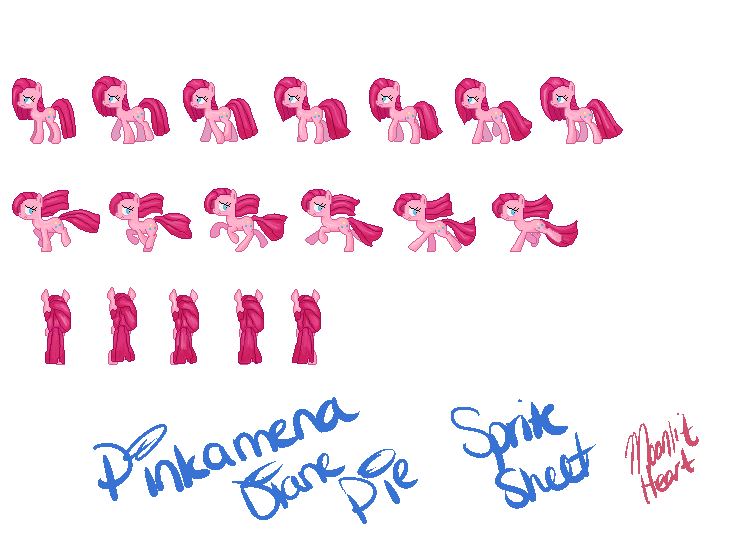 Pinkamena
Diane Pie
Sprite
Sheet
Moonlit
Heart